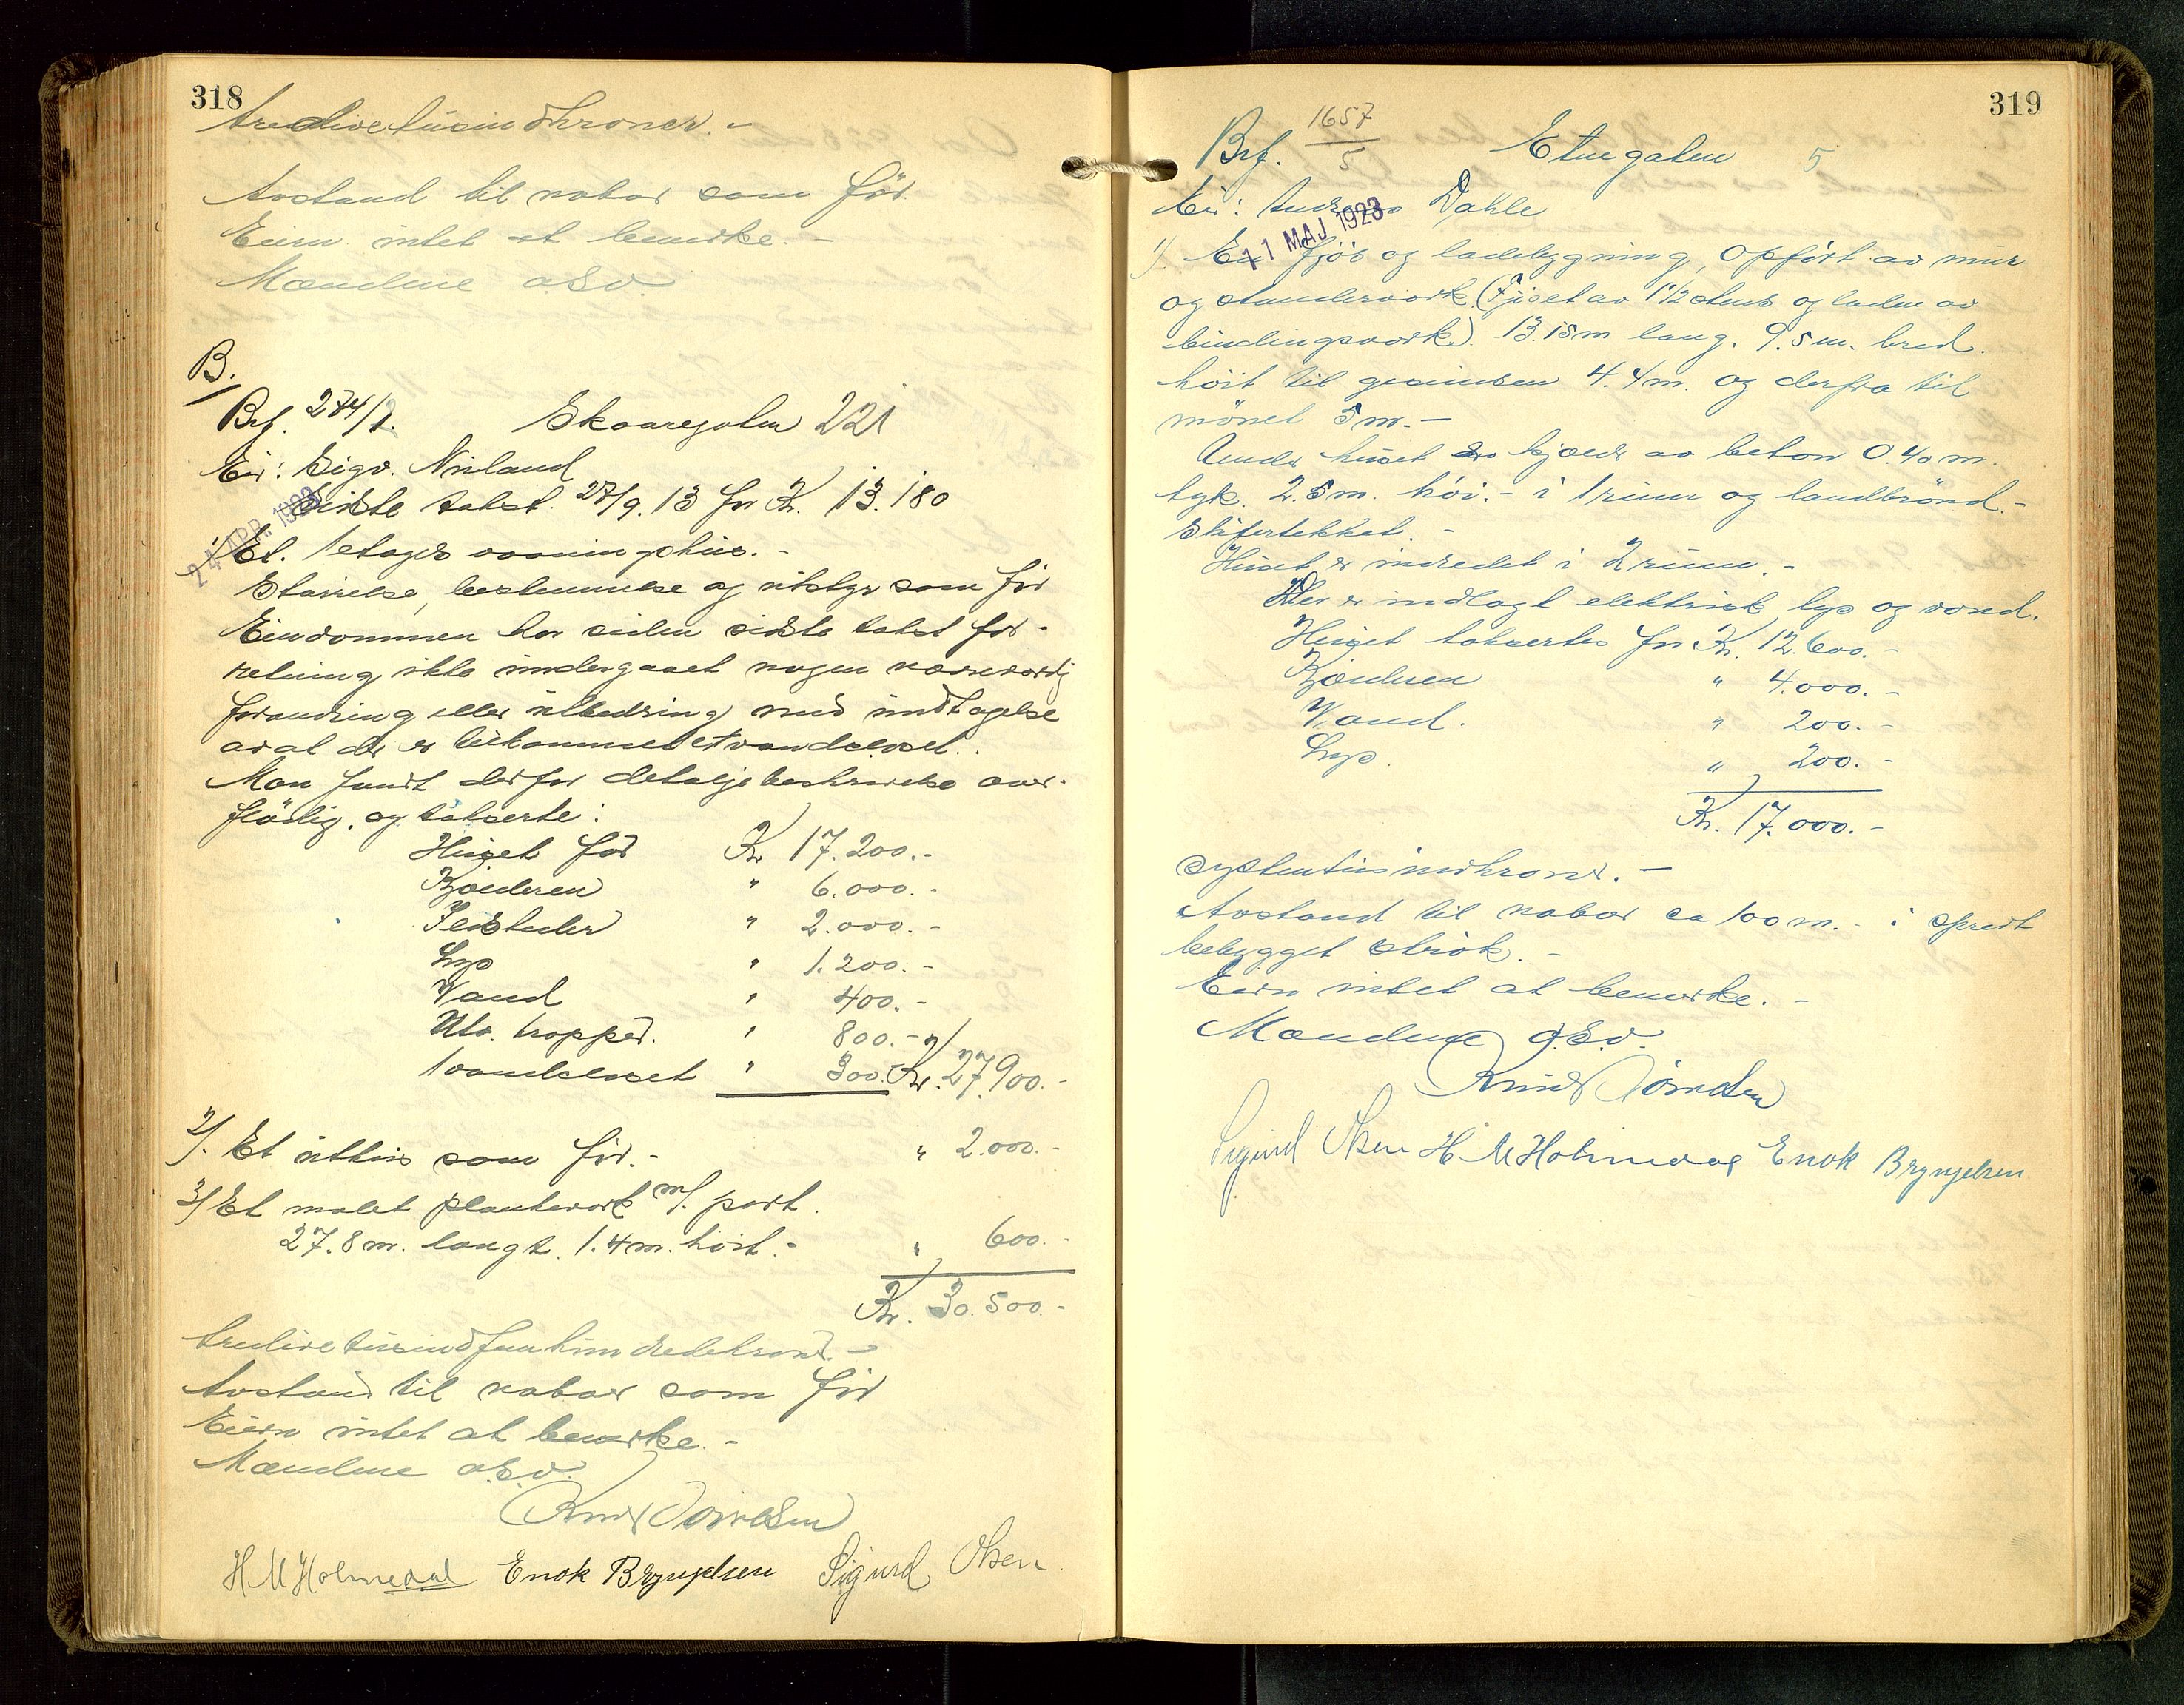 318
tredivetusindkroner.-
Avstand til nabor som før.
Eiern intet at bemerke.-
Mændene o.s.v.
B.
Brf. 274/1. Skaaregaten 221
Eir: Sigv. Niland
Sidste takst. 27/9.13 for Kr. 13.180
24 APR. 1923
1/ Et. 1 etages vaaningshus.-
Størrelse, bestemmelse og utstyr som før
Eiendommen har siden sidste takst for-
retning ikke undergaaet nogen nævneværdig
forandring eller utbedring med undtagelse
av at der er tilkommet et vandcloset.
Man fandt derfor detaljebeskrivelse over-
flødig, og takserte:
Huset for Kr 17.200.-
Kjælderen " 6.000.-
" 2.000.-
Lys " 1.200.-
Vand " 400.-
Utv. trapper. " 800.-
1 vandcloset " 300. Kr. 27.900.-
2/. Et uthus som før.- " 2.000.-
3/ Et malet plankeverk m/. port.
27.8 m. langt. 1.4 m. høit.- " 600.-
Kr. 30.500.-
tredivetusindfemhundredekroner.-
Avstand til nabor som før
Eiern intet at bemerke.-
Mændene o.s.v.
Knut
H M Holmedal Enok Bryngelsen Sigurd Olsen
319
Brf. 1657/5 Etnegaten 5
Eir: Andreas Dahle
11 MAJ 1923
1/ En fjøs og ladebygning, opført av mur
og stenderverk. (Fjøset av 1 1/2 stens og laden av
bindingsverk). 13.15 m lang. 9.5 m. bred.
høit til gesimsen 4.4 m. og derfra til
mønet 5 m.-
Under huset er kjælder av beton 0.40 m.
tyk. 2.5 m. høi.- i 1 rum og landbrønd.-
Skifertekket.-
Huset er indredet i 2 rum.-
Der er indlagt elektrisk lys og vand.
Huset takseertes for Kr. 12.600.-
Kjælderen " 4.000.-
Vand. " 200.-
Lys. " 200.-
Kr. 17.000.-
syttentusindkroner.-
Avstand til nabor ca 100 m.- i spredt
bebygget strøk.-
Eiern intet at bemerke.-
Mændene o.s.v.
Knut
Sigurd Olsen H M Holmedal Enok Bryngelsen